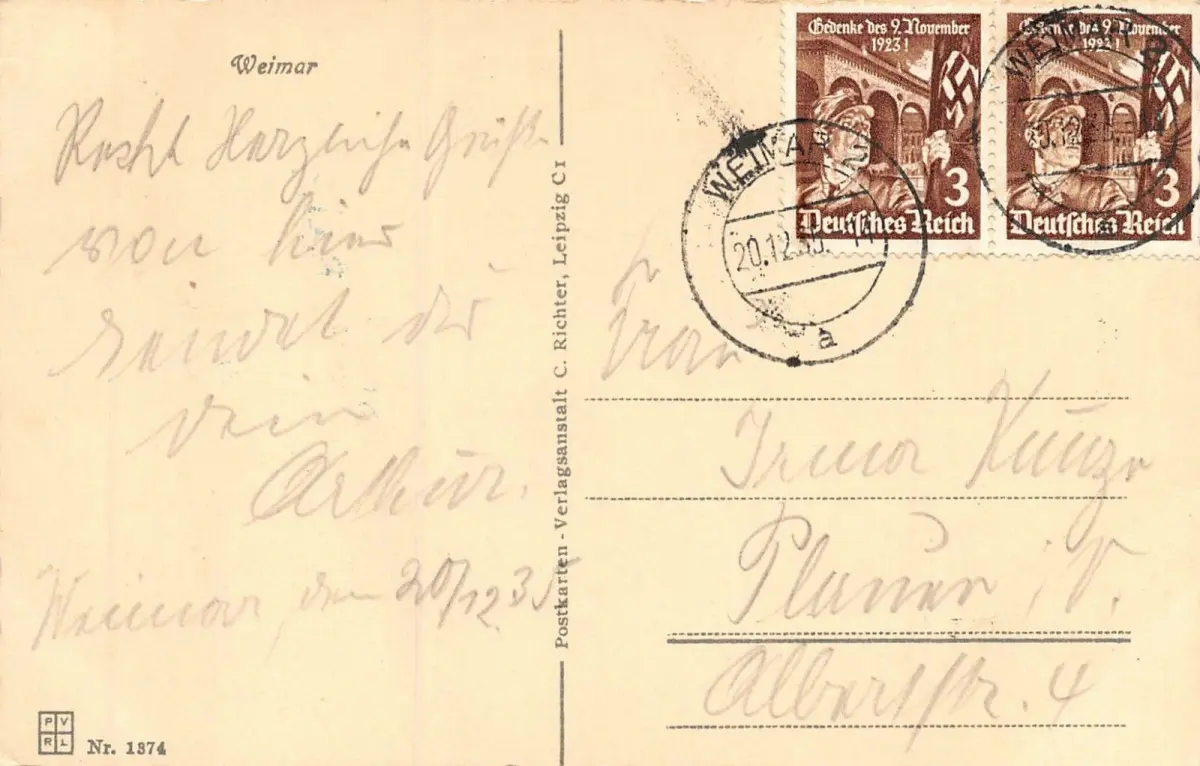 Weimar
Recht Herzliche Grüße
von hier
sendet dir
dein
Arthur.
Weimar, den 20/12 35
PVRL
Nr. 1374
Postkarten-Verlagsanstalt C. Richter, Leipzig C1
Gedenke des 9. November
1923!
3
Deutsches Reich
Gedenke des 9. November
1923!
3
Deutsches Reich
WEIMAR 2
20.12.35.
a
WEIMAR 2
20.12.35
a
Frau
Irma Kunze
Plauen i. V.
Albertstr. 4